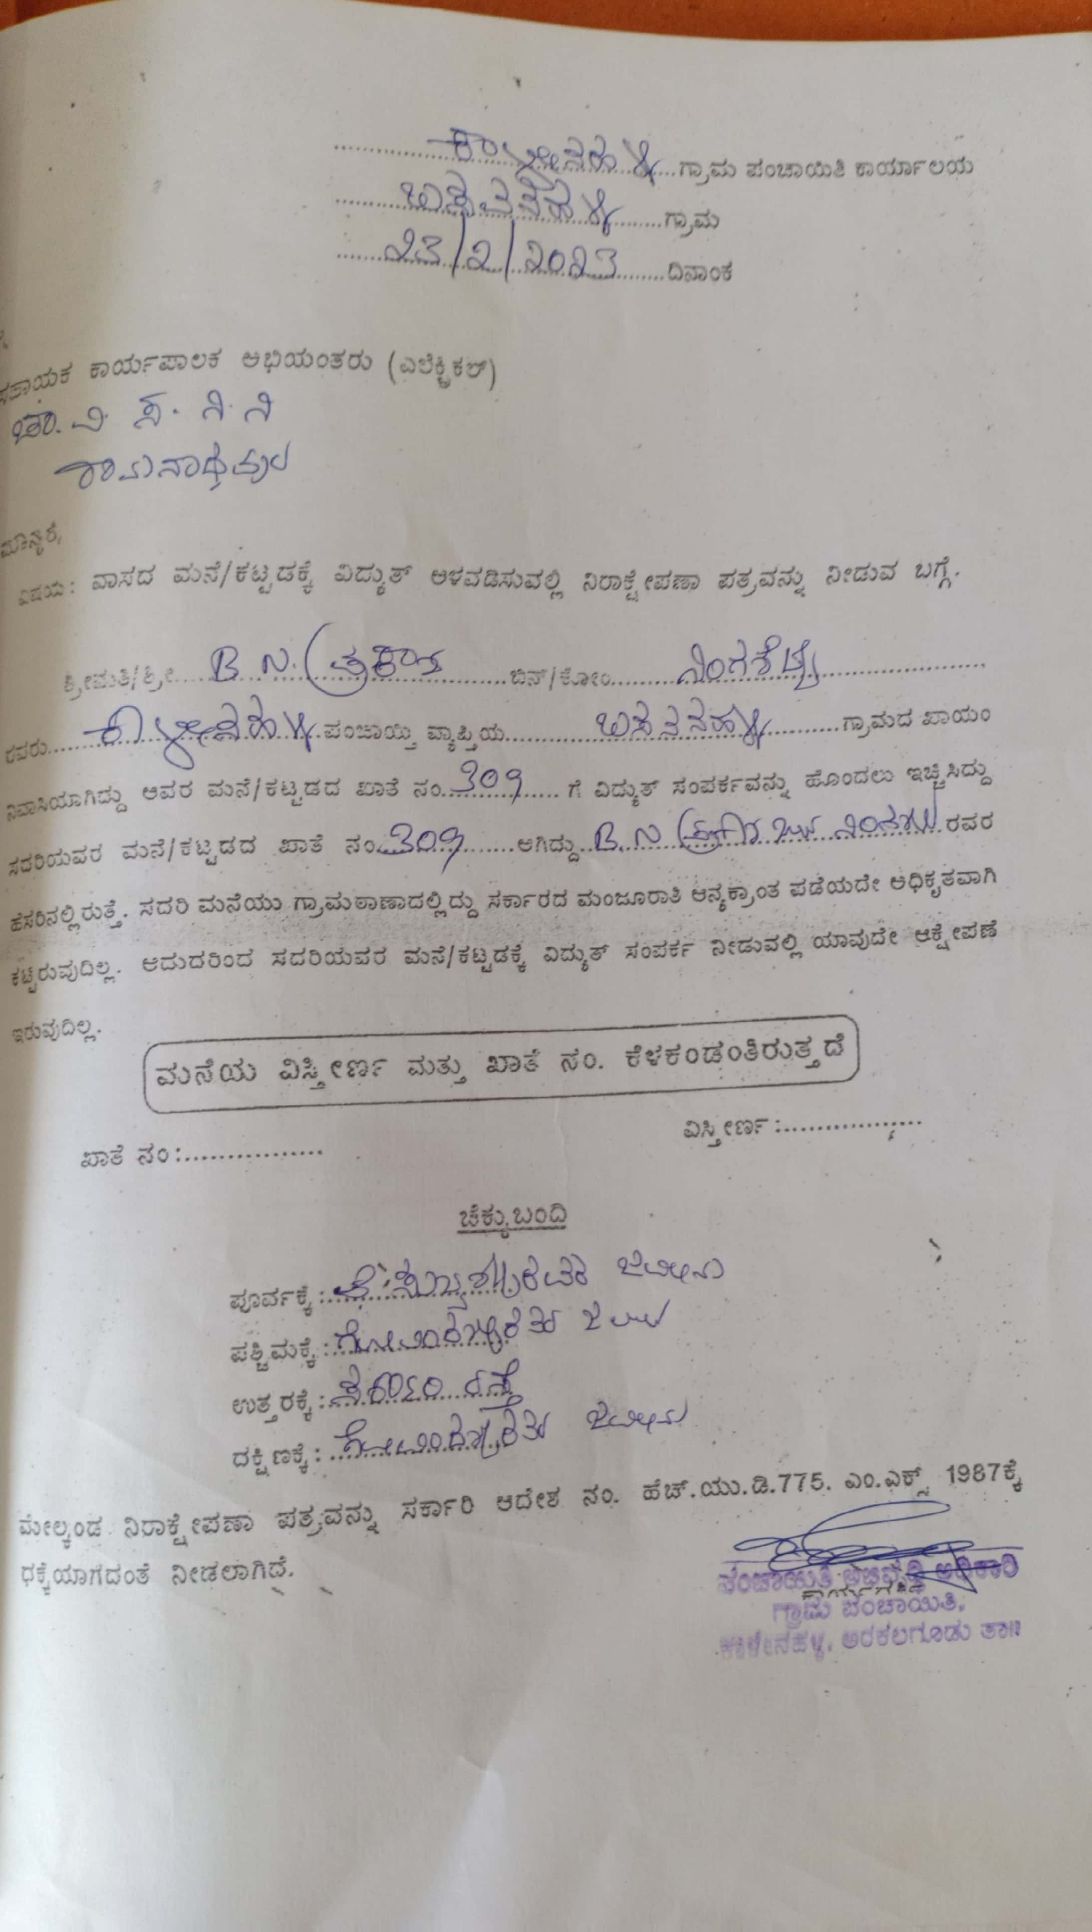 ಕಾಳೇನಹಳ್ಳಿ ಗ್ರಾಮ ಪಂಚಾಯಿತಿ ಕಾರ್ಯಾಲಯ
ಬಸವನಹಳ್ಳಿ ಗ್ರಾಮ
23/2/2023 ದಿನಾಂಕ
ಸಹಾಯಕ ಕಾರ್ಯಪಾಲಕ ಅಭಿಯಂತರು (ಎಲೆಕ್ಟ್ರಿಕಲ್)
ಚಾ. ವಿ. ಸ. ನಿ. ನಿ
ರಾಮನಾಥಪುರ
ಮಾನ್ಯರೆ,
ವಿಷಯ: ವಾಸದ ಮನೆ/ಕಟ್ಟಡಕ್ಕೆ ವಿದ್ಯುತ್ ಅಳವಡಿಸುವಲ್ಲಿ ನಿರಾಕ್ಷೇಪಣಾ ಪತ್ರವನ್ನು ನೀಡುವ ಬಗ್ಗೆ.
ಶ್ರೀಮತಿ/ಶ್ರೀ B N. ಪ್ರಕಾಶ ಬಿನ್/ಕೋಂ ನಿಂಗಶೆಟ್ಟಿ
ರವರು ಕಾಳೇನಹಳ್ಳಿ ಪಂಚಾಯ್ತಿ ವ್ಯಾಪ್ತಿಯ ಬಸವನಹಳ್ಳಿ ಗ್ರಾಮದ ಖಾಯಂ
ನಿವಾಸಿಯಾಗಿದ್ದು ಅವರ ಮನೆ/ಕಟ್ಟಡದ ಖಾತೆ ನಂ. 309 ಗೆ ವಿದ್ಯುತ್ ಸಂಪರ್ಕವನ್ನು ಹೊಂದಲು ಇಚ್ಚಿಸಿದ್ದು
ಸದರಿಯವರ ಮನೆ/ಕಟ್ಟಡದ ಖಾತೆ ನಂ. 309 ಆಗಿದ್ದು B. N ರವರ
ಹೆಸರಿನಲ್ಲಿರುತ್ತೆ. ಸದರಿ ಮನೆಯು ಗ್ರಾಮಠಾಣಾದಲ್ಲಿದ್ದು ಸರ್ಕಾರದ ಮಂಜೂರಾತಿ ಆನ್ಯಕ್ರಾಂತ ಪಡೆಯದೇ ಅಧಿಕೃತವಾಗಿ
ಕಟ್ಟಿರುವುದಿಲ್ಲ. ಆದುದರಿಂದ ಸದರಿಯವರ ಮನೆ/ಕಟ್ಟಡಕ್ಕೆ ವಿದ್ಯುತ್ ಸಂಪರ್ಕ ನೀಡುವಲ್ಲಿ ಯಾವುದೇ ಆಕ್ಷೇಪಣೆ
ಇರುವುದಿಲ್ಲ.
ಮನೆಯ ವಿಸ್ತೀರ್ಣ ಮತ್ತು ಖಾತೆ ನಂ. ಕೆಳಕಂಡಂತಿರುತ್ತದೆ
ಖಾತೆ ನಂ:................ ವಿಸ್ತೀರ್ಣ:..................
ಚೆಕ್ಕುಬಂದಿ
ಪೂರ್ವಕ್ಕೆ: ಜಮೀನು
ಪಶ್ಚಿಮಕ್ಕೆ:
ಉತ್ತರಕ್ಕೆ: ರಸ್ತೆ
ದಕ್ಷಿಣಕ್ಕೆ: ಜಮೀನು
ಮೇಲ್ಕಂಡ ನಿರಾಕ್ಷೇಪಣಾ ಪತ್ರವನ್ನು ಸರ್ಕಾರಿ ಆದೇಶ ನಂ. ಹೆಚ್.ಯು.ಡಿ.775. ಎಂ.ಎಕ್ಸ್ 1987ಕ್ಕೆ
ಧಕ್ಕೆಯಾಗದಂತೆ ನೀಡಲಾಗಿದೆ.
ಪಂಚಾಯಿತಿ ಅಭಿವೃದ್ಧಿ ಅಧಿಕಾರಿ
ಕಾರ್ಯದರ್ಶಿ
ಗ್ರಾಮ ಪಂಚಾಯಿತಿ,
ಕಾಳೇನಹಳ್ಳಿ, ಅರಕಲಗೂಡು ತಾ||